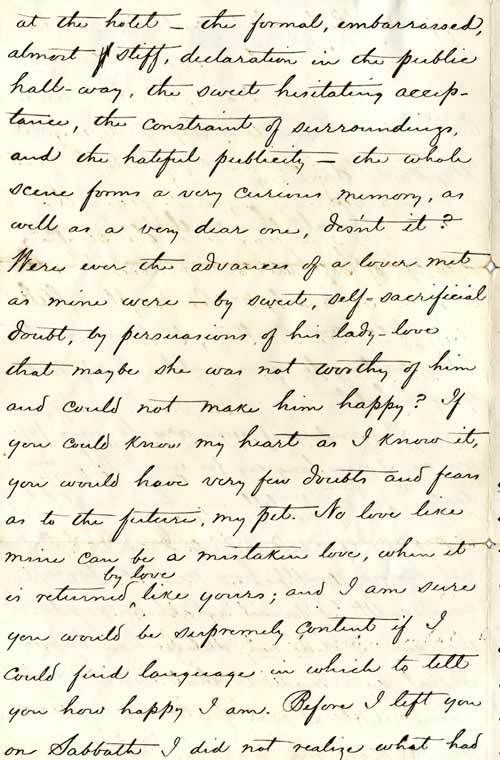 at the hotel – the formal, embarrassed,
almost stiff, declaration in the public
hall-way, the sweet hesitating accep-
tance, the constraint of surroundings,
and the hateful publicity – the whole
scene forms a very curious memory, as
well as a very dear one, does'nt it?
Were ever the advances of a lover met
as mine were – by sweet, self-sacrificial
doubt, by persuasions of his lady-love
that maybe she was not worthy of him
and could not make him happy? If
you could know my heart as I know it,
you would have very few doubts and fears
as to the future, my pet. No love like
mine can be a mistaken love, when it
by love
is returned, like yours; and I am sure
you would be supremely content if I
could find language in which to tell
you how happy I am. Before I left you
on Sabbath I did not realize what had